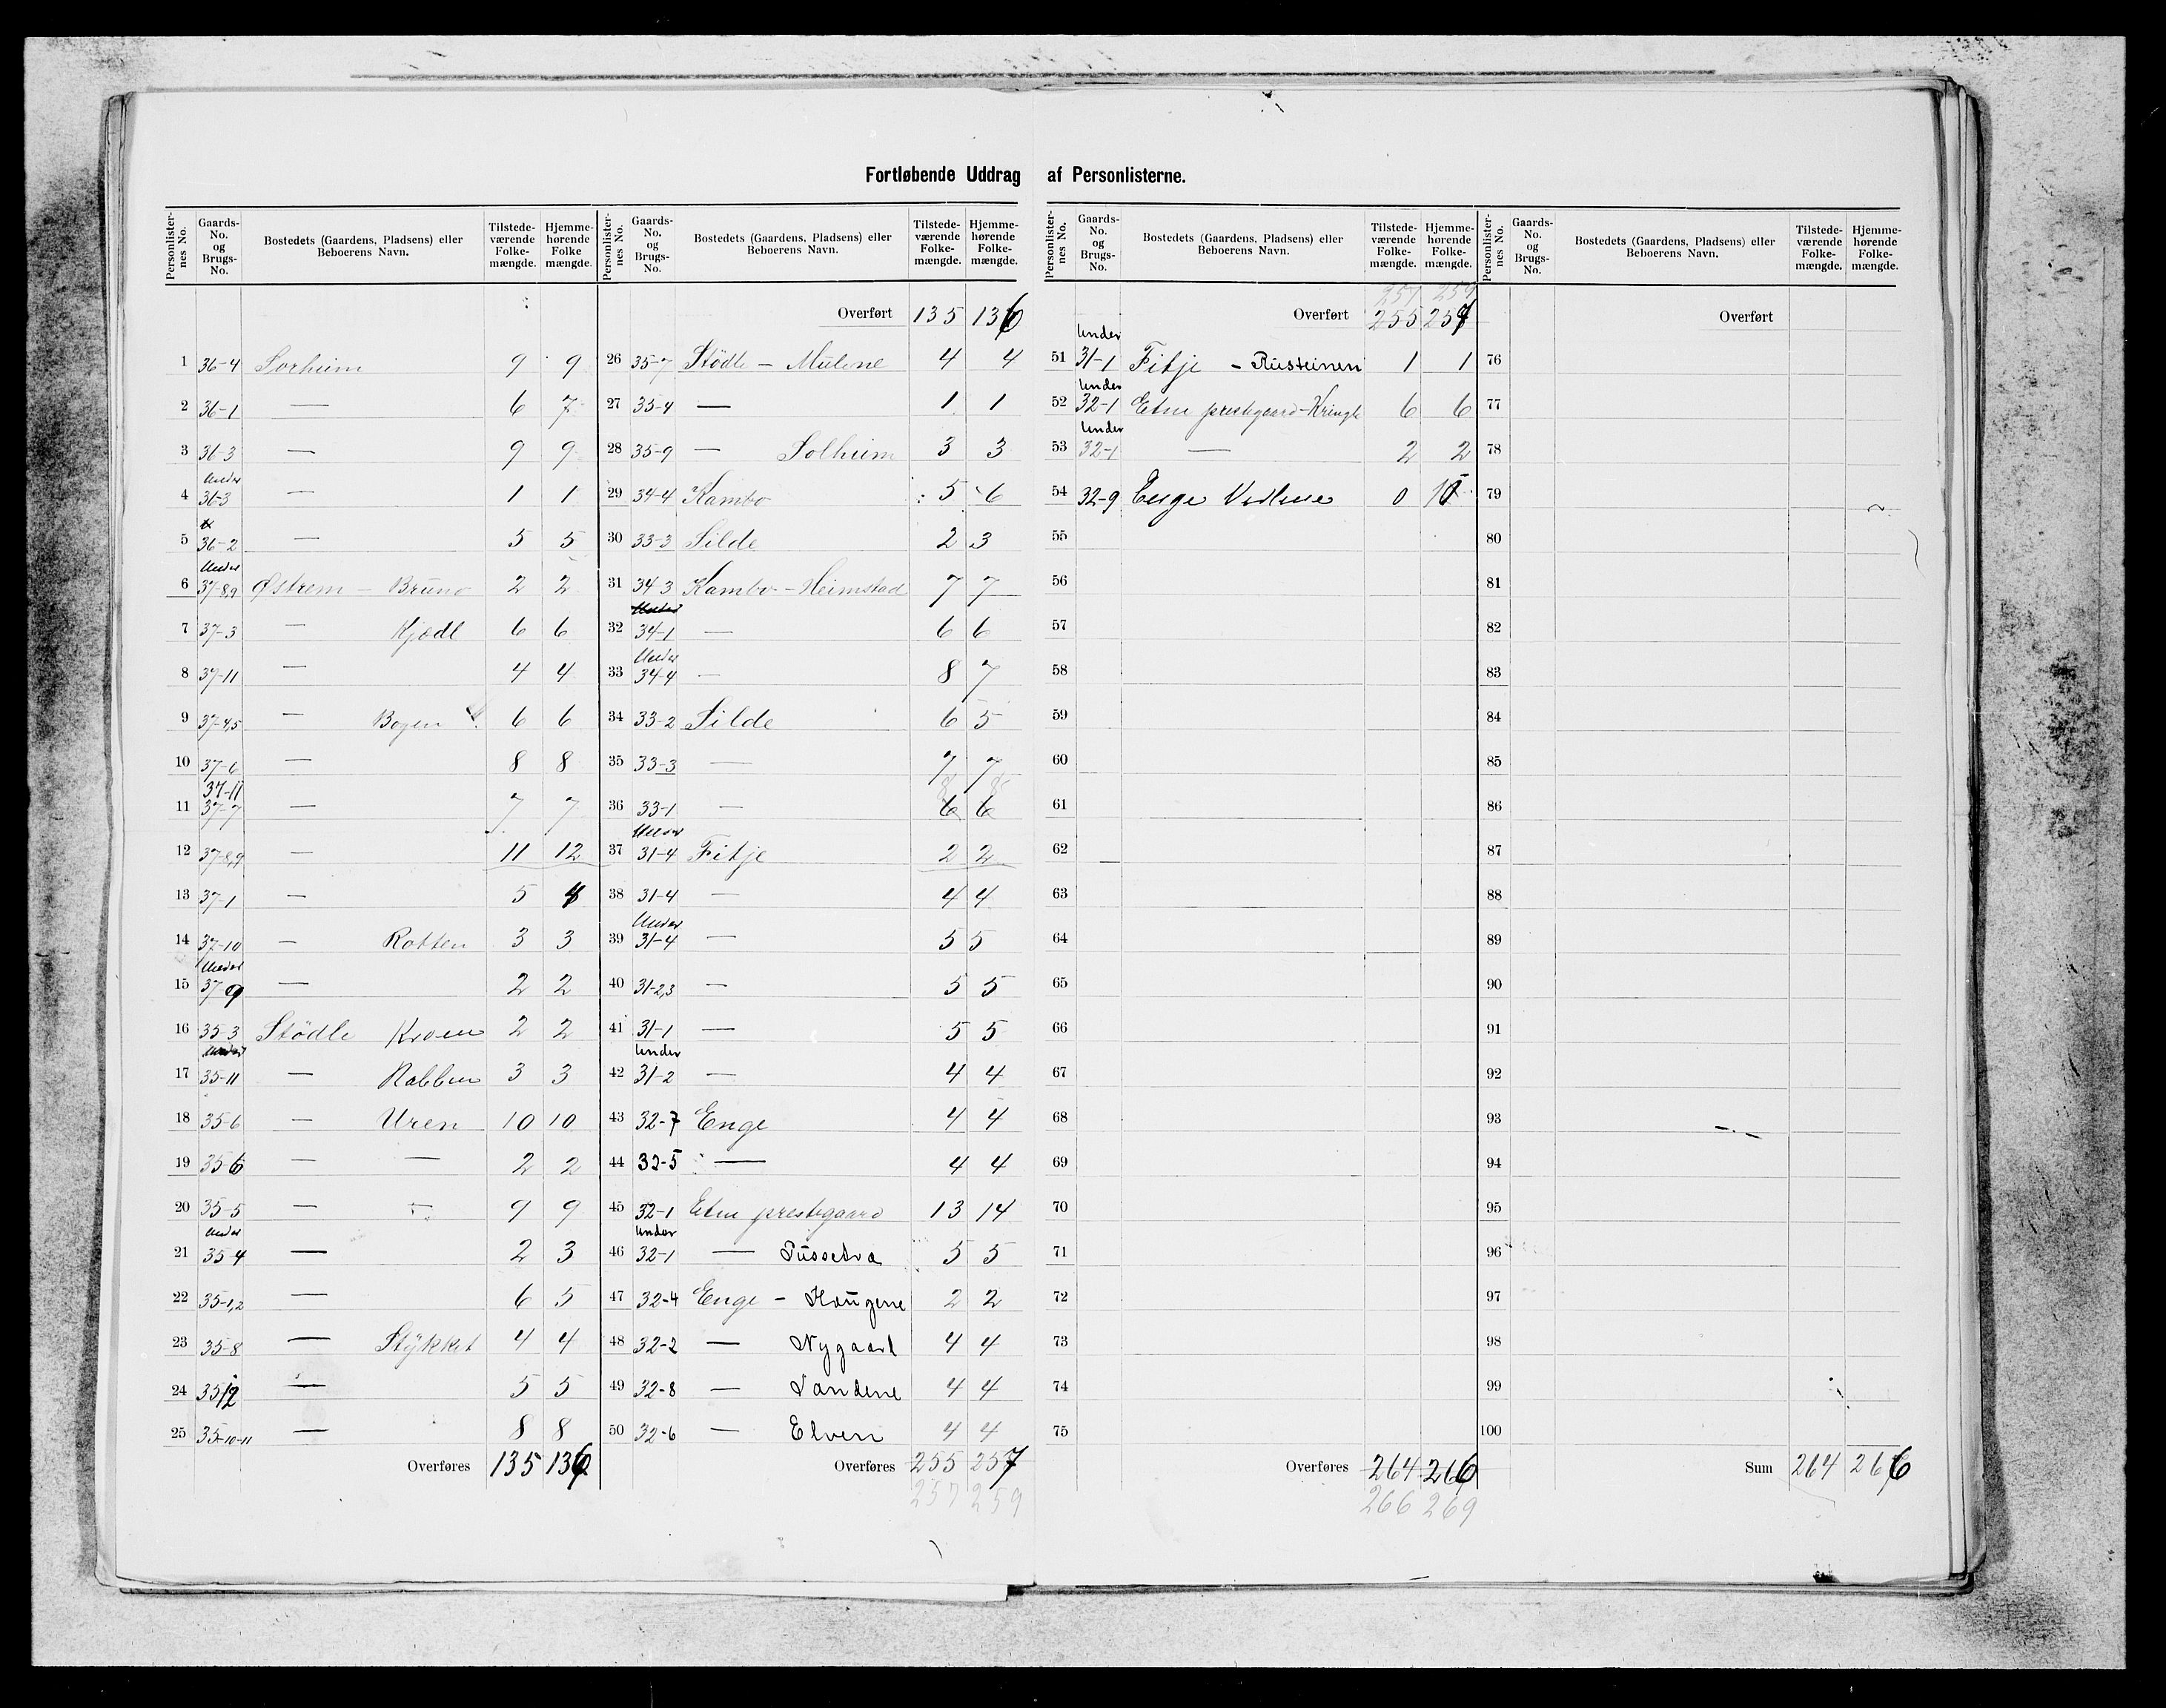 Fortløbende Uddrag af Personlisterne.
Personlister-nes No. | Gaards-No. og Brugs-No. | Bostedets (Gaardens, Pladsens) eller Beboerens Navn. | Tilstede-værende Folke-mængde. | Hjemme-hørende Folke mængde.
1 36-4 Sørheim 9 9
2 36-1 — 6 7
3 36-3 — 9 9
4 Under 36-3 — 1 1
5 36-2 — 5 5
6 Under 37-8,9 Østrem - Bruno 2 2
7 37-3 — Kjødl 6 6
8 37-11 — 4 4
9 37-4,5 — Bogen 6 6
10 37-6 — 8 8
11 37-11 37-7 — 7 7
12 37-8,9 — 11 12
13 37-1 — 5 4
14 37-10 — Rotten 3 3
15 Under 37-9 — 2 2
16 35-3 Stödle Kroen 2 2
17 Under 35-11 — Rabben 3 3
18 35-6 — Uren 10 10
19 35-6 — — 2 2
20 35-5 — — 9 9
21 Under 35-4 — 2 3
22 35-1,2 — 6 5
23 35-8 — Stykket 4 4
24 35-12 — 5 5
25 35-10-11 — 8 8
Overføres 135 136
Personlister-nes No. | Gaards-No. og Brugs-No. | Bostedets (Gaardens, Pladsens) eller Beboerens Navn. | Tilstede-værende Folke-mængde. | Hjemme-hørende Folke-mængde.
Overført 135 136
26 35-7 Stödle - Mulene 4 4
27 35-4 — 1 1
28 35-9 — Solheim 3 3
29 34-4 Kambo 5 6
30 33-3 Silde 2 3
31 34-3 Kambo - Heimstad 7 7
32 Under 34-1 — 6 6
33 Under 34-4 — 8 7
34 33-2 Silde 6 5
35 33-3 — 7 7
36 33-1 — 6 6
37 Under 31-4 Fitje 2 2
38 31-4 — 4 4
39 Under 31-4 — 5 5
40 31-2,3 — 5 5
41 31-1 — 5 5
42 Under 31-2 — 4 4
43 32-7 Enge 4 4
44 32-5 — 4 4
45 32-1 Etne prestegaard 13 14
46 Under 32-1 — Tussetva 5 5
47 32-4 Enge - Haugene 2 2
48 32-2 — Nygaard 4 4
49 32-8 — Sandene 4 4
50 32-6 — Elven 4 4
Overføres 255 257
257 259
Personlister-nes No. | Gaards-No. og Brugs-No. | Bostedets (Gaardens, Pladsens) eller Beboerens Navn. | Tilstede-værende Folke-mængde. | Hjemme-hørende Folke-mængde.
257 259
Overført 255 257
51 Under 31-1 Fitje - Rusteinen 1 1
52 Under 32-1 Etne prestegaard - Kringle 6 6
53 Under 32-1 — 2 2
54 32-9 Enge Vedlene 0 1
55
56
57
58
59
60
61
62
63
64
65
66
67
68
69
70
71
72
73
74
75
Overføres 264 266
266 269
Personlister-nes No. | Gaards-No. og Brugs-No. | Bostedets (Gaardens, Pladsens) eller Beboerens Navn. | Tilstede-værende Folke-mængde. | Hjemme-hørende Folke-mængde.
Overført
76
77
78
79
80
81
82
83
84
85
86
87
88
89
90
91
92
93
94
95
96
97
98
99
100
Sum 264 266